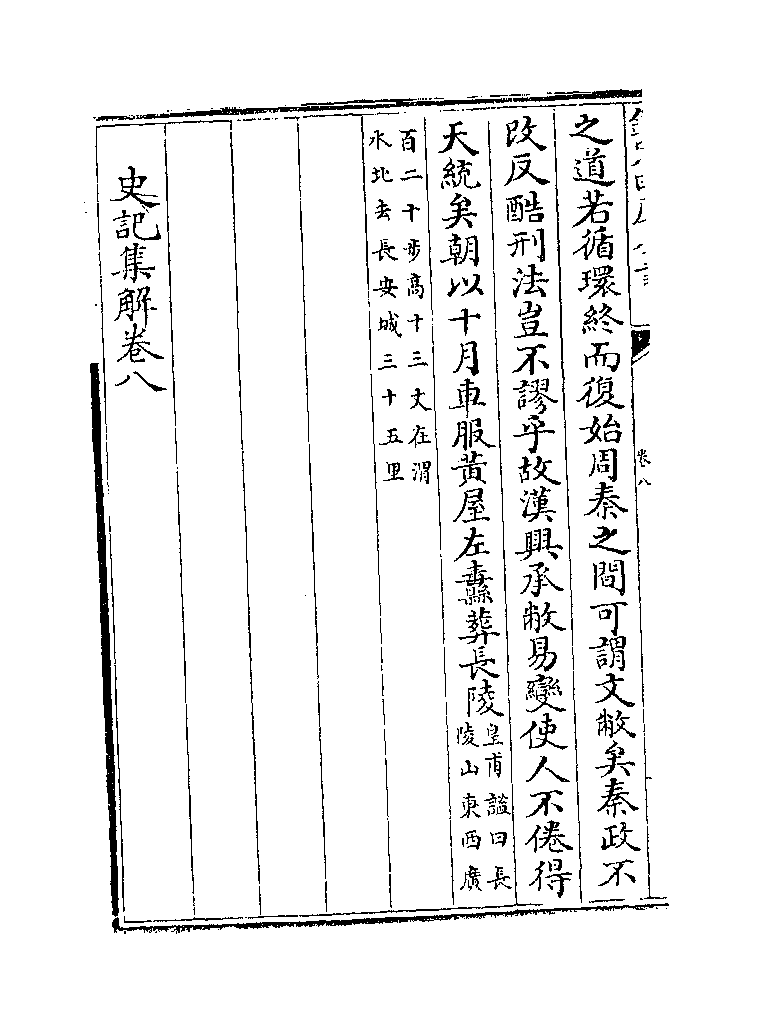 之道若循環終而復始周秦之間可謂文敝矣秦政不
改反酷刑法豈不謬乎故漢興承敝易變使人不倦得
天統矣朝以十月車服黃屋左纛葬長陵
皇甫謐曰長
陵山東西廣
百二十步高十三丈在渭
水北去長安城三十五里
史記集解卷八
卷八